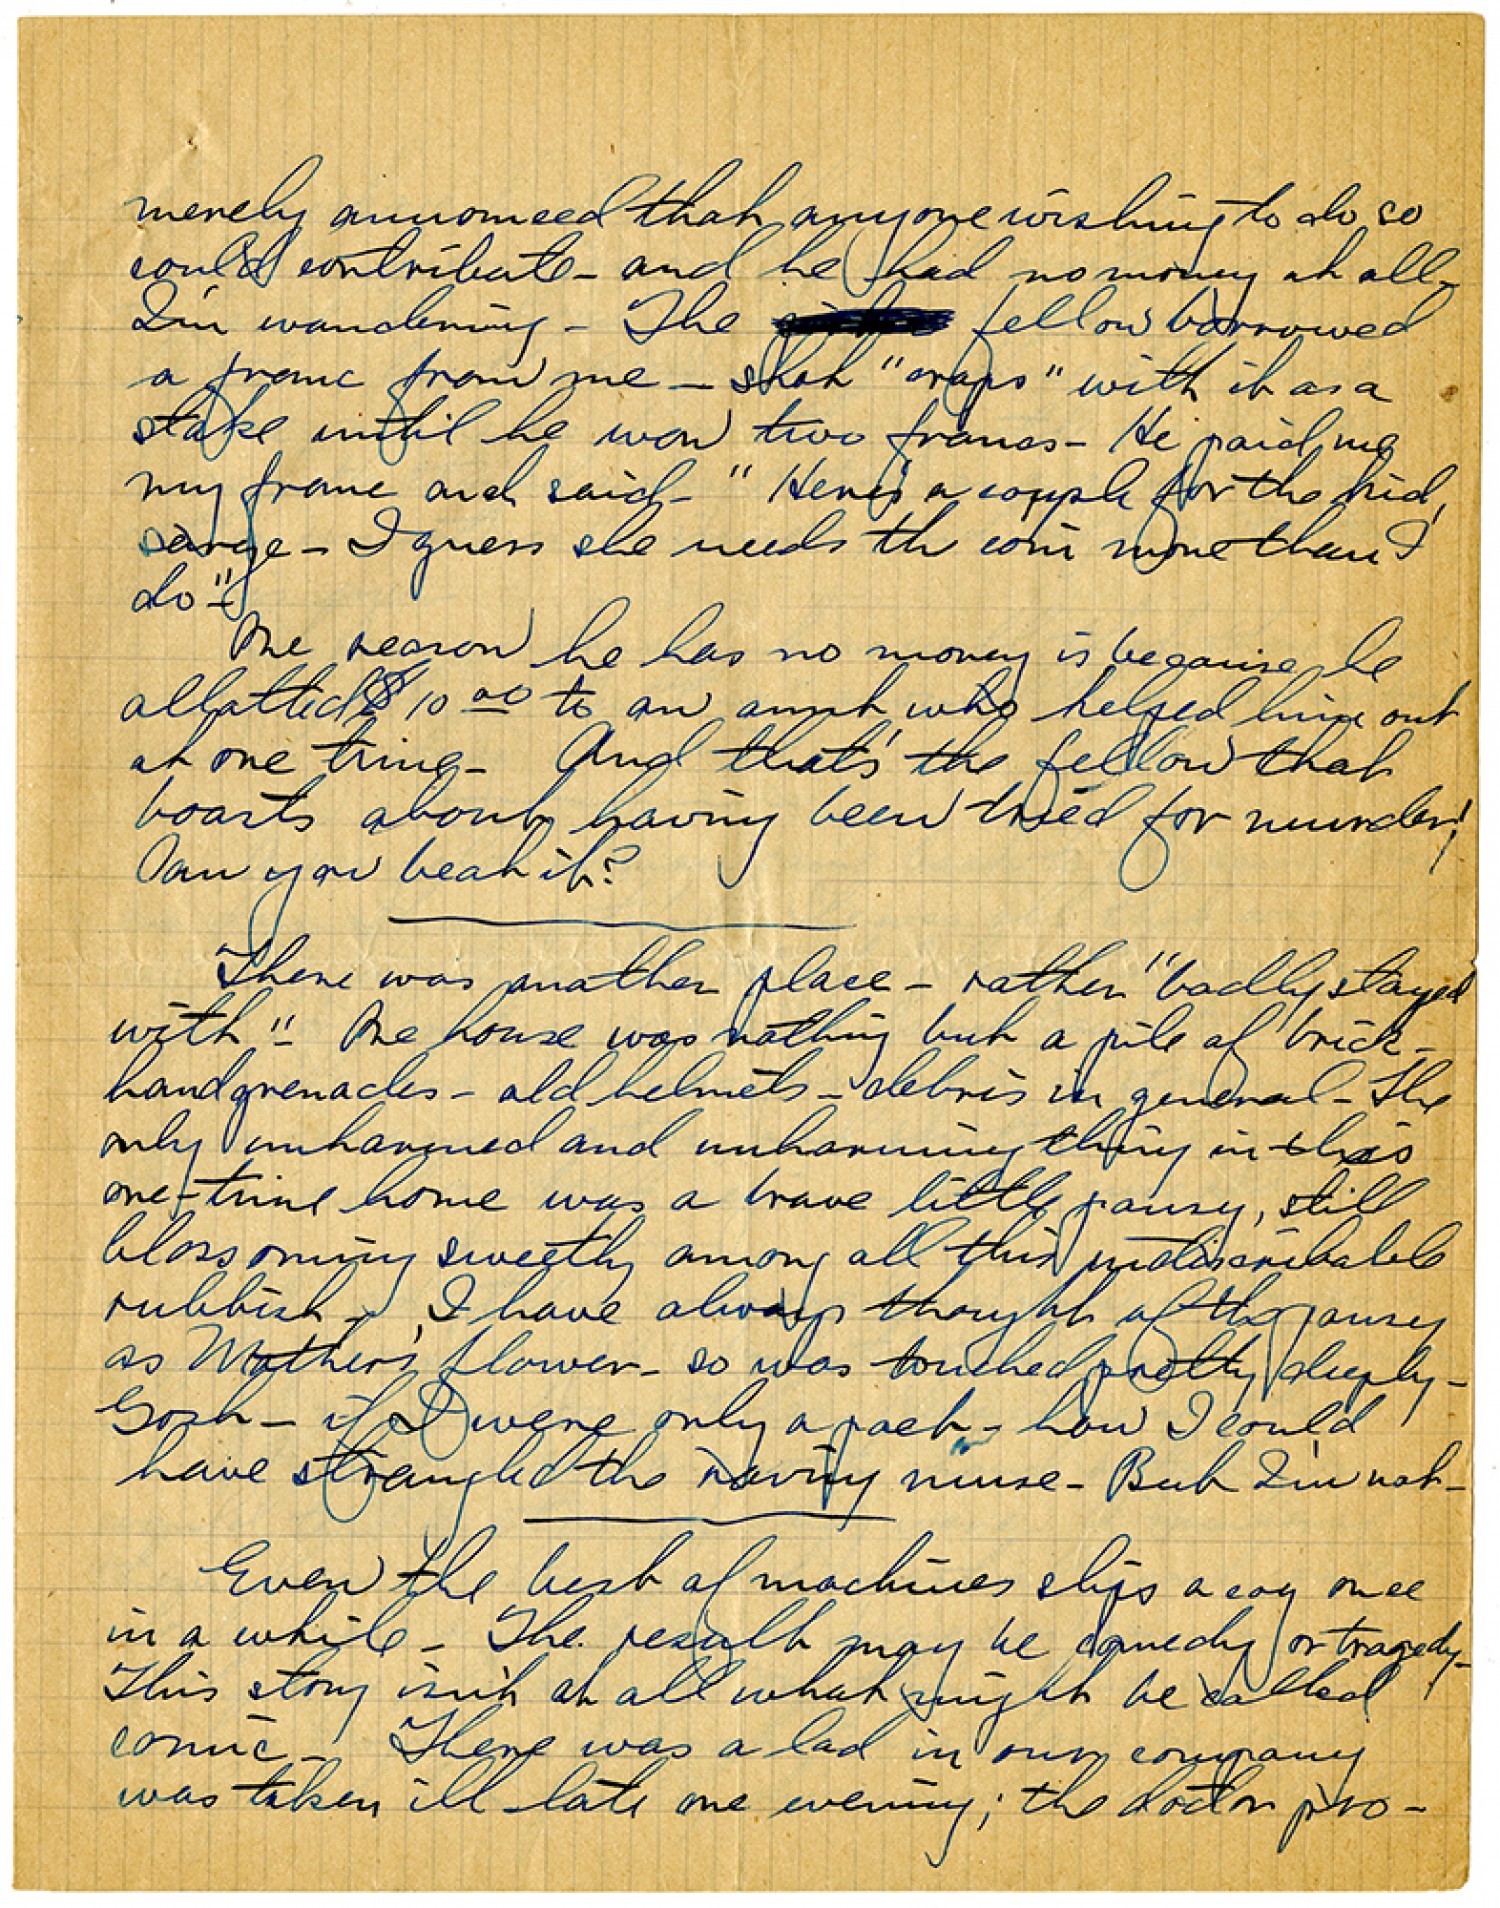 merely announced that anyone wishing to do so
could contribute - and he had no money at all -
I'm wandering - The fellow borrowed
a franc from me - shot "craps" with it as a
stake until he won two francs - He paid me
my franc and said - "Here's a couple for the kid,
sarge - I guess she needs th coin more than I
do" -
One reason he has no money is because he
allotted $10 00 to an aunt who helped him out
at one time - And that's the fellow that
boasts about having been tried for murder!
Can you beat it?
There was another place - rather "badly stayed
with" - One house was nothing but a pile of brick -
handgrenades - old helmets - debris in general - The
only unharmed and unharming thing in this
one-time home was a brave little pansy, still
blossoming sweetly among all this indiscribable
rubbish - I have always thought of the pansy
as Mother's flower - so was touched pretty deeply -
Gosh - if I were only a poet - how I could
have strangled the muse - But I'm not -
Even the best of machines slips a cog once
in a while - The result may be comedy or tragedy -
This story isn't at all what might be called
comic - There was a lad in our company
was taken ill late one evening; the doctor pro-